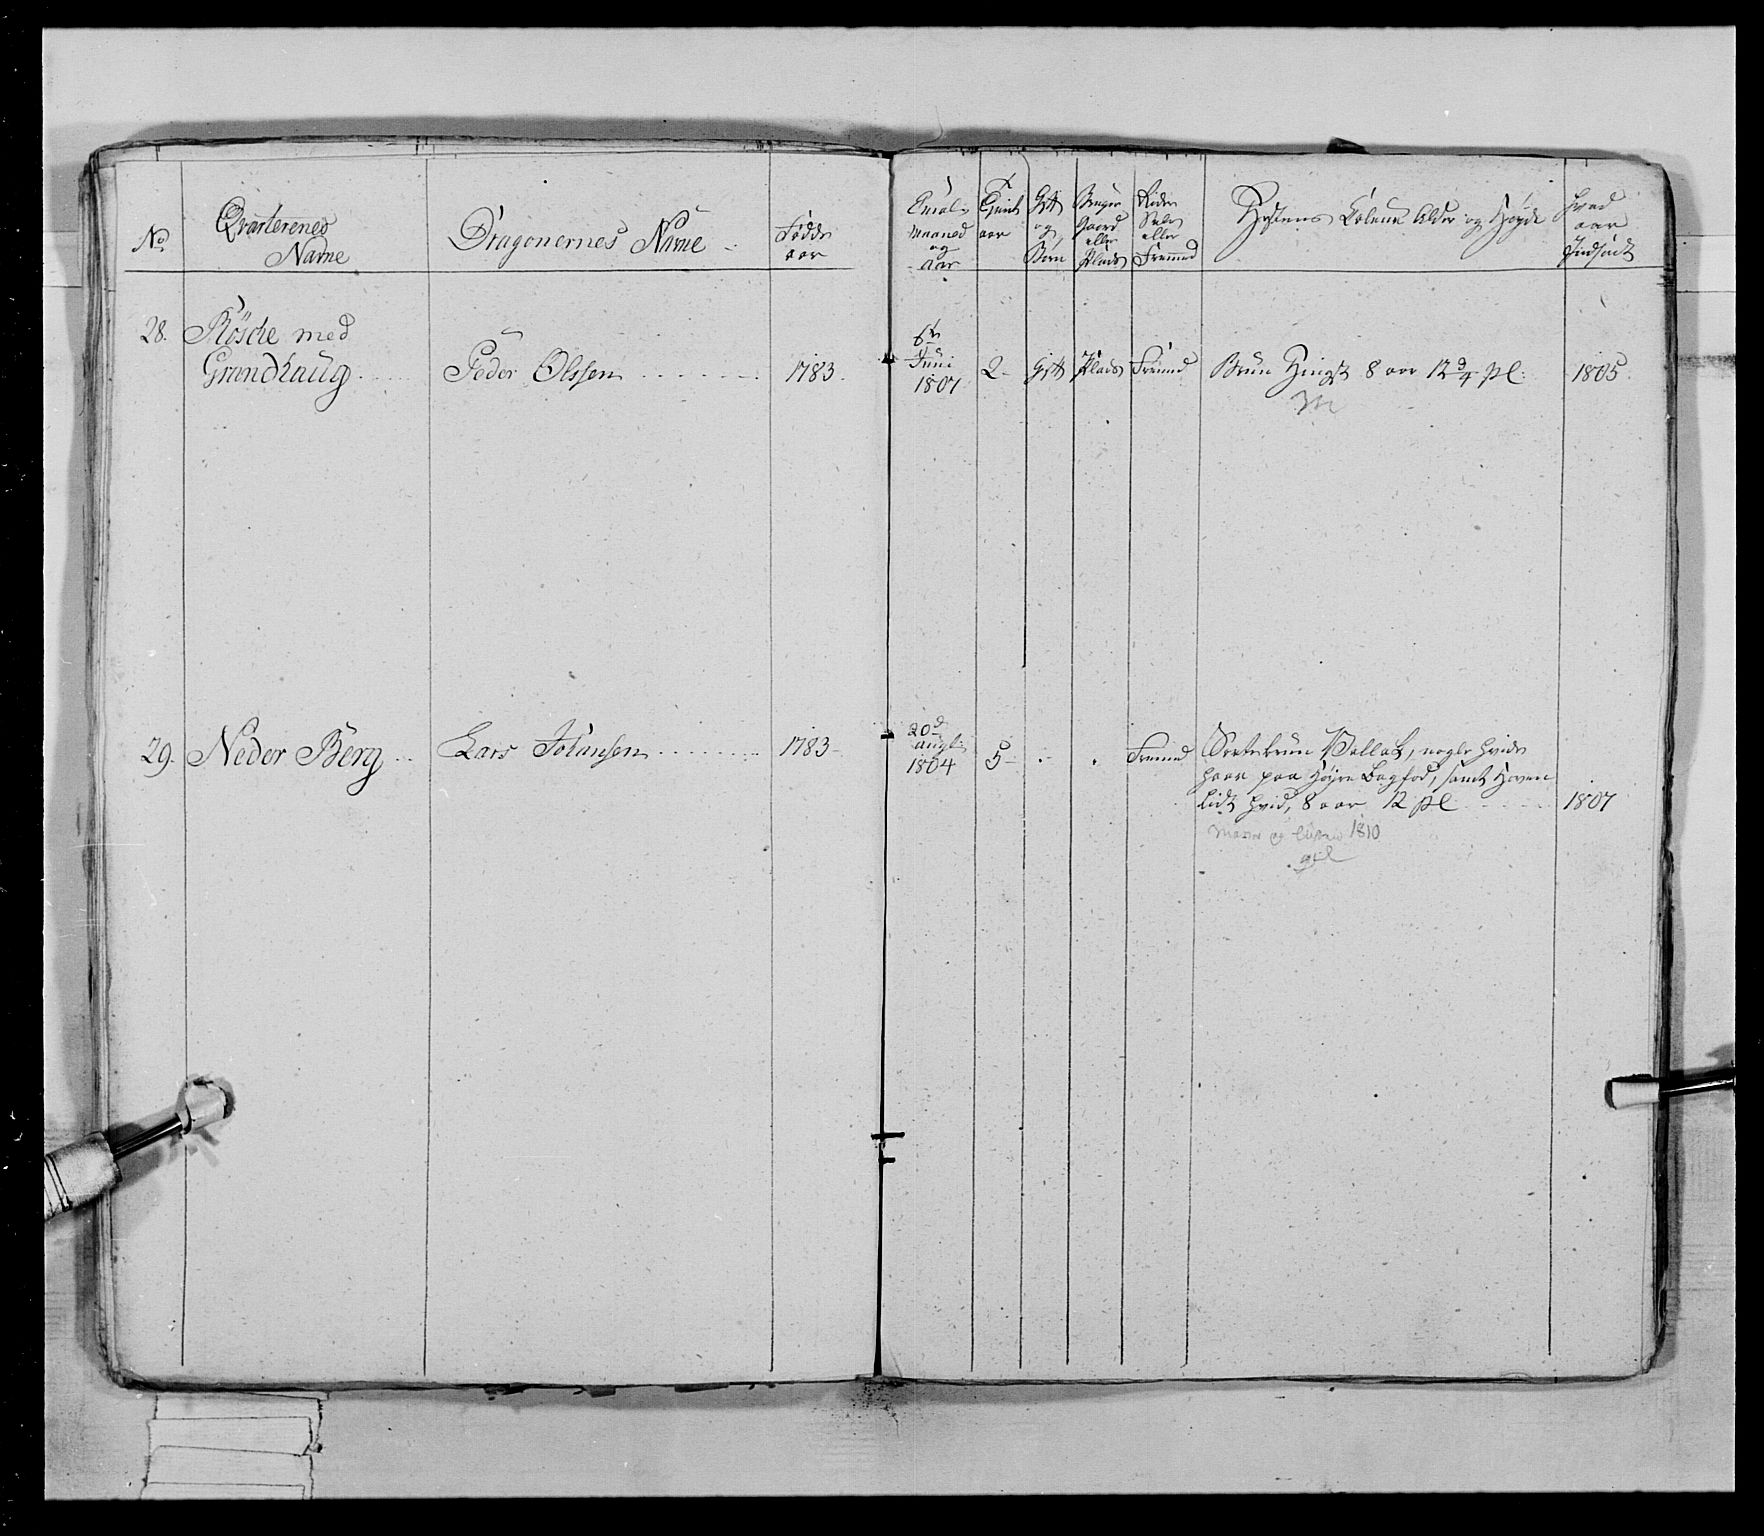 No
Qvarterenes
Navne
Dragonernes Navne
Fødde
aar
Maaned
og
aar
Tient
aar
Gift
og
Børn
Bruger
Gaard
eller
Plads
Rider
Selv
eller
Fremmed
Hestens Coleur Alder og Høyde
Hvad
aar
Indsadt
28. Røsche med
Grandhaug
Peder Olssen
1783.
6te
Juni
1807
2
Gift
Plads
Fremmed
Brun Hingst 8 aar 12 3/4 pl:
1805.
29. Neder Berg
Lars Johansen
1783
20d
augt:
1804
5
Fremmed
Sortebrun Vallak, nogle hvide
haar paa Høyre Bagfod, samt Hoven
lidt hvid, 8 aar 12 pl
1807
1810